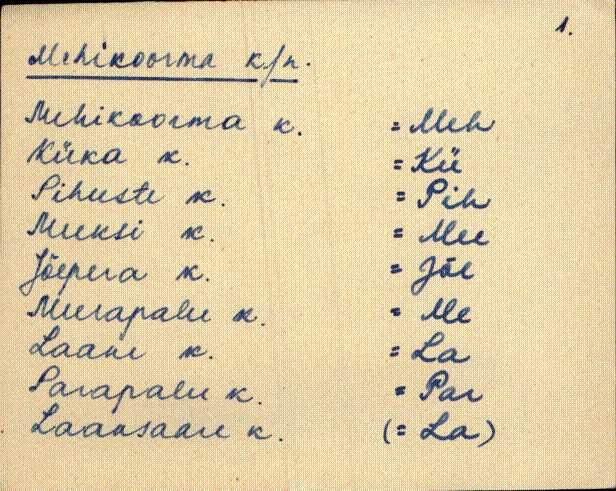 1.
Mehikoorma k/n.
Mehikoorma k. = Meh
Küka k. = Kü
Pihuste k. = Pih
Meeksi k. = Mee
Jõepera k. = Jõe
Meerapalu k. = Me
Laane k. = La
Parapalu k. = Par
Laaksaare k. (= La)